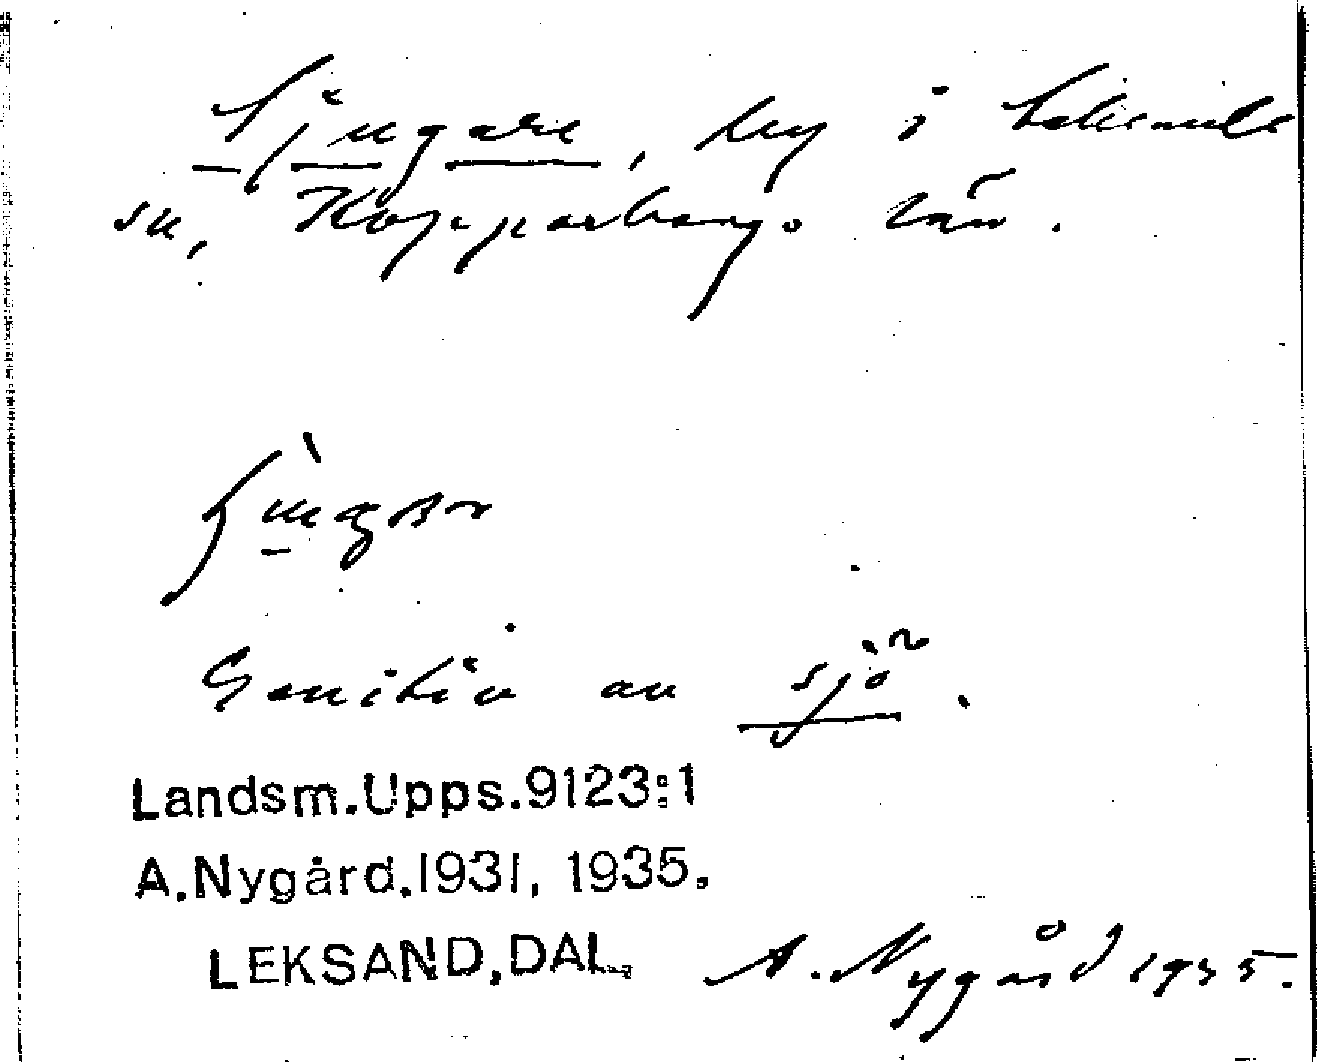 Sjugare, by i Leksands
sn, Kopparbergs län.
Genitiv av sjö.
Landsm.Upps.9123:1
A.Nygård.1931, 1935.
LEKSAND,DAL.
A. Nygård 1935.